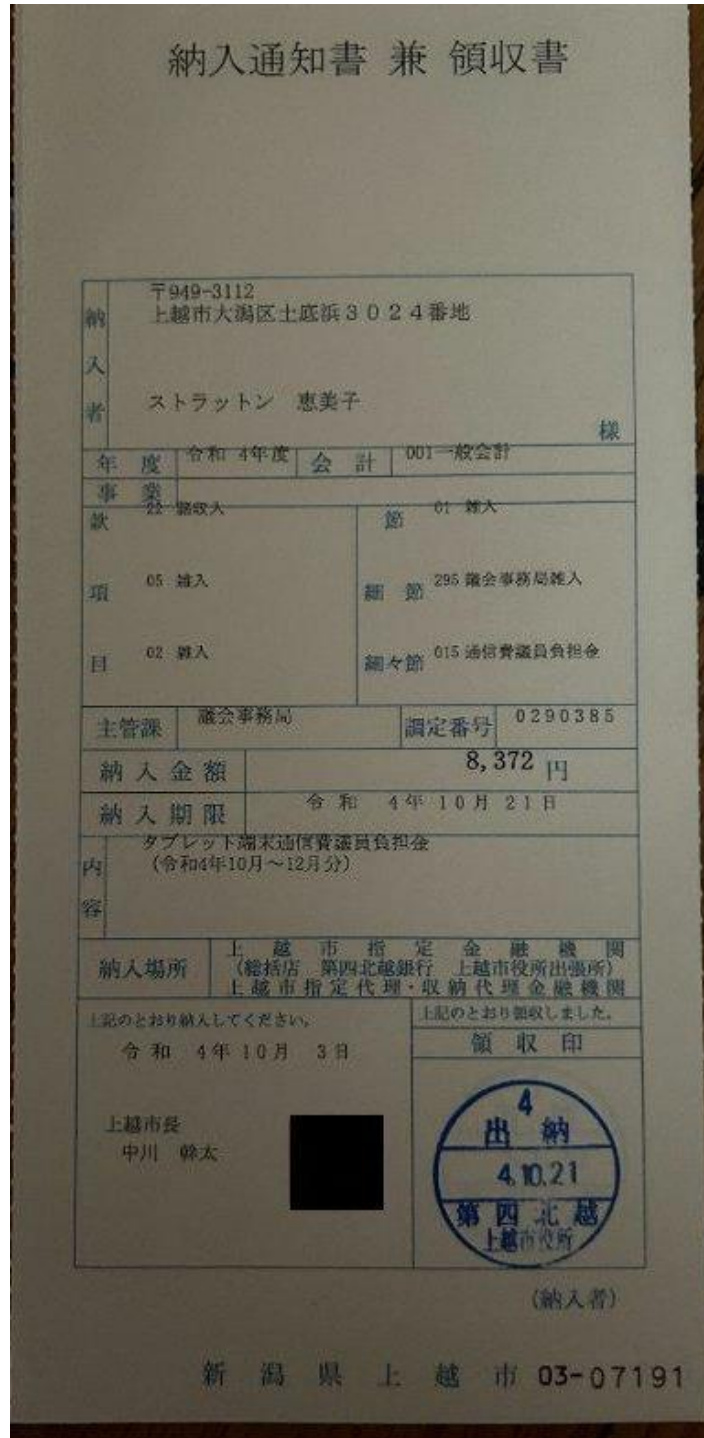 納入通知書 兼 領収書
〒949-3112
上越市大潟区土底浜3024番地
納入者
ストラットン 恵美子
様
年度 令和 4年度 会計 001 一般会計
事業
款 22 諸収入 節 01 雑入
項 05 雑入 細節 295 議会事務局雑入
目 02 雑入 細々節 015 通信費議員負担金
主管課 議会事務局 調定番号 0290385
納入金額 8,372 円
納入期限 令和 4年10月21日
内容 タブレット端末通信費議員負担金
(令和4年10月~12月分)
納入場所 上越市指定金融機関
(総括店 第四北越銀行 上越市役所出張所)
上越市指定代理・収納代理金融機関
上記のとおり納入してください。
令和 4年10月 3日
上越市長
中川 幹太
上記のとおり領収しました。
領収印
4
出納
4.10.21
第四北越
上越市役所
(納入者)
新潟県上越市 03-07191